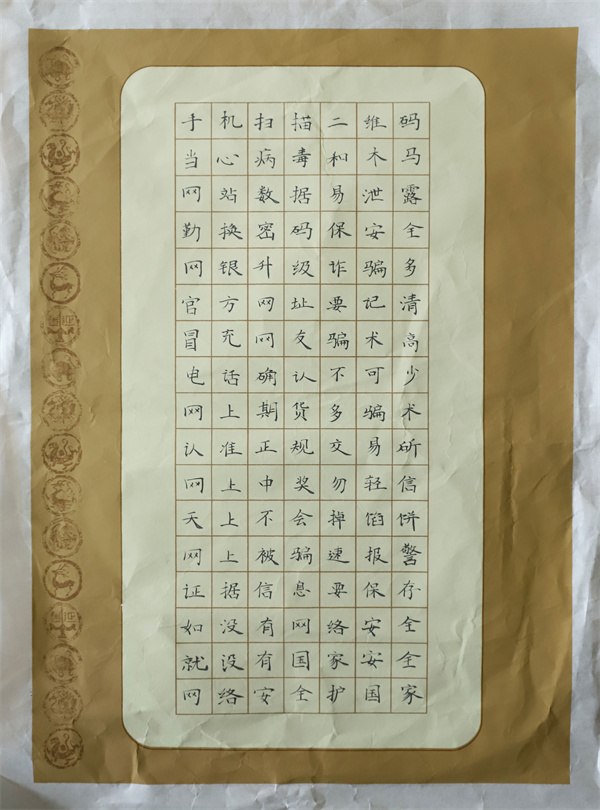 手机扫描二维码
当心病毒和木马
网站数据易泄露
勤换密码保安全
网银升级诈骗多
官方网址要记清
冒充网友骗术高
电话确认不可少
网上期货多骗术
认准正规交易所
网上中奖勿轻信
天上不会掉馅饼
网上被骗速报警
证据信息要保存
如没有网络安全
就没有国家安全
网络安全护国家